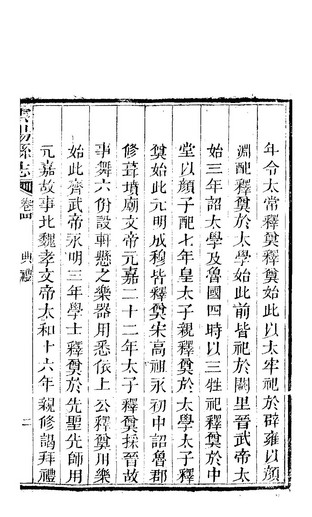 年令太常釋奠釋奠始此以太牢祀於辟雍以顏
淵配釋奠於太學始此前皆祀於闕里晉武帝太
始三年詔太學及魯國四時以三牲祀釋奠於中
堂以顏子配七年皇太子親釋奠於太學太子釋
奠始此元明成穆皆釋奠宋高祖永初中詔魯郡
修葺墳廟文帝元嘉二十二年太子釋奠採晉故
事舞六佾設軒懸之樂器用悉依上公釋奠用樂
始此齊武帝永明三年學士釋奠於先聖先師用
元嘉故事北魏孝文帝太和十六年親修謁拜禮
陽縣志
卷四
典禮
二